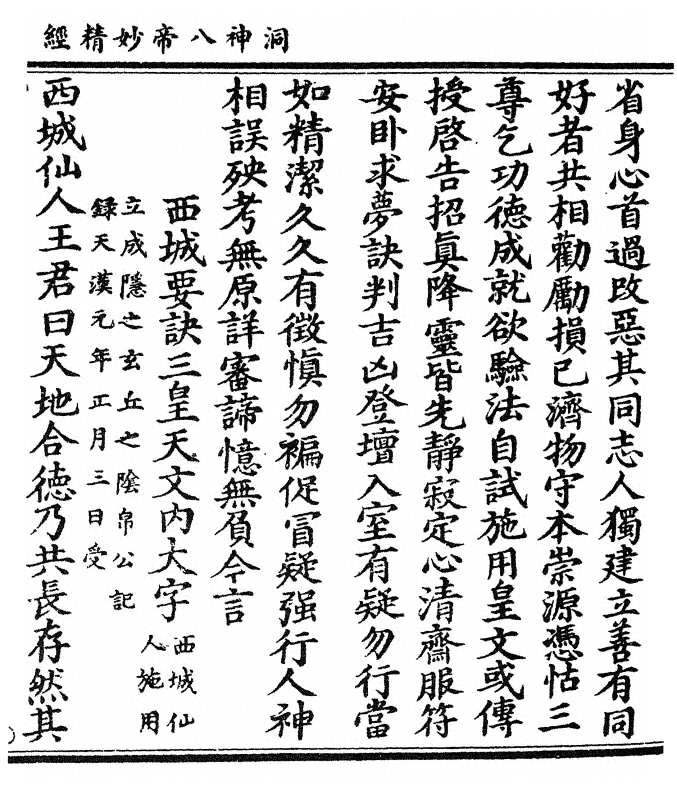 洞神八帝妙精經
省身心首過改惡其同志人獨建立善有同
好者共相勸勵損己濟物守本崇源憑怙三
尊乞功德成就欲驗法自試施用皇文或傳
授啓告招真降靈皆先靜寂定心清齋服符
安卧求夢訣判吉凶登壇入室有疑勿行當
如精潔久久有徵慎勿褊促冒疑强行人神
相誤殃考無原詳審諦憶無負今言
西城要訣三皇天文内大字
西城仙
人施用
立成隱之玄丘之陰帛公記
録天漢元年正月三日受
西城仙人王君曰天地合德乃共長存然其